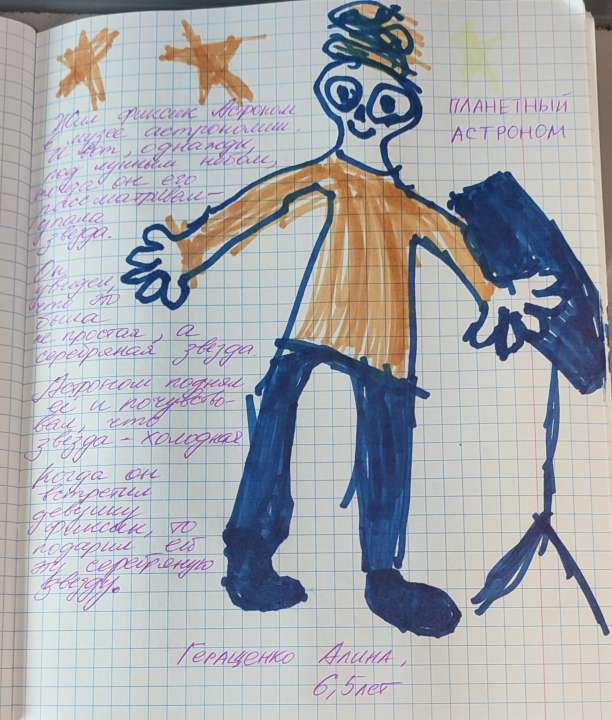 ПЛАНЕТНЫЙ
АСТРОНОМ
Жил фиксик Астроном
в музее астрономии.
И вот, однажды,
под лунным небом,
когда он его
рассматривал –
упала
звезда.
Он
увидел,
что это
была
не простая, а
серебряная звезда.
Астроном поднял
её и почувство-
вал, что
звезда – холодная
Когда он
встретил
девушку
фиксик, то
подарил ей
эту серебряную
звезду.
Геращенко Алина,
6,5 лет